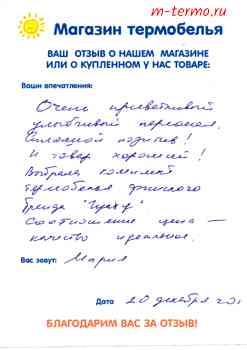 m-termo.ru
Магазин термобелья
ВАШ ОТЗЫВ О НАШЕМ МАГАЗИНЕ
ИЛИ О КУПЛЕННОМ У НАС ТОВАРЕ:
Ваши впечатления:
Очень приветливый
улыбчивый персонал.
Сплошной позитив!
И товар хороший!
Выбрала комплект
термобелья финского
бренда "Гуаху"
Соотношение цена –
качество идеальное.
Вас зовут: Мария
Дата 20 декабря
БЛАГОДАРИМ ВАС ЗА ОТЗЫВ!